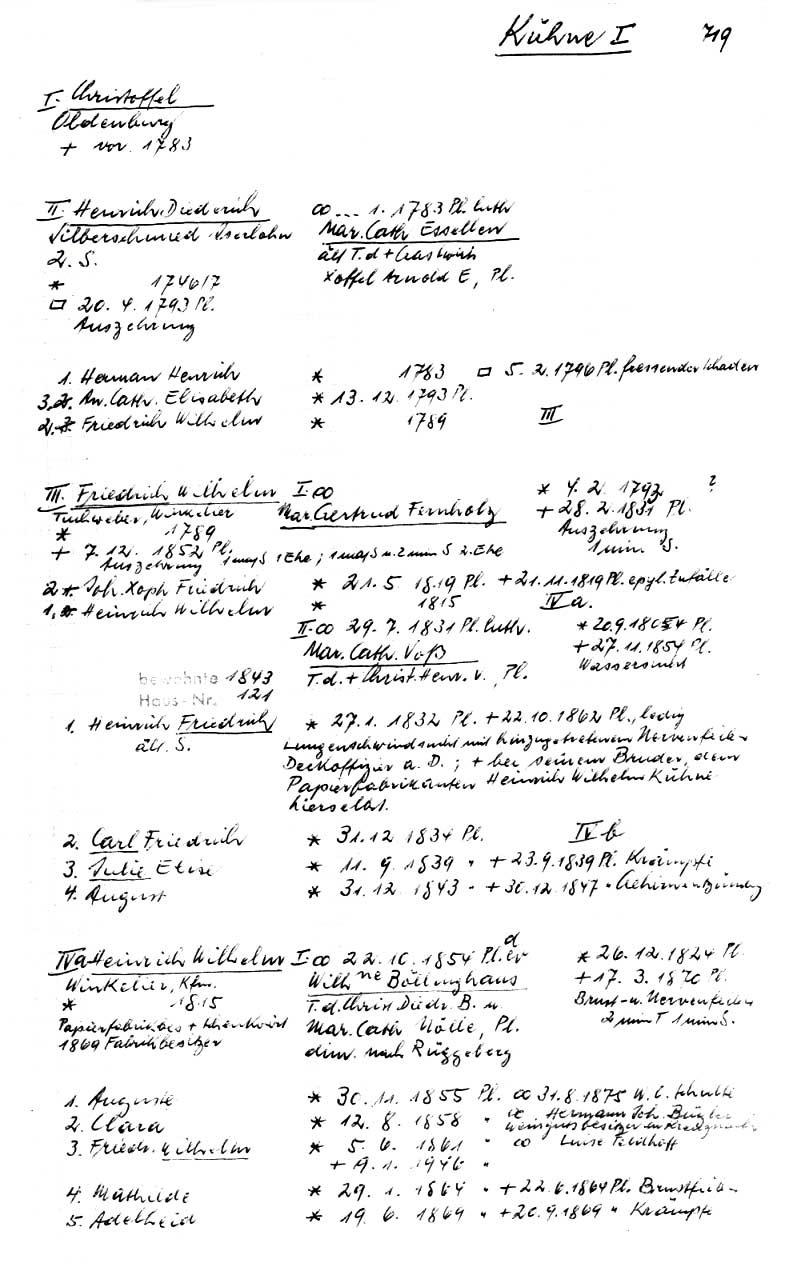 Kühne I 719
I. Christoffel
Oldenburg
+ vor. 1783
II. Henrich Diederich ∞ ... 1. 1783 Pl. luth
Silberschmied Iserlohn Mar. Cath Essellen
2. S. ält T. d + Gastwirt
* 1746/7 Xoffel Arnold E, Pl.
▭ 20. 4. 1793 Pl.
Auszehrung
1. Herman Henrich * 1783 ▭ 5. 2. 1796 Pl. fressender Schaden
3. An. Cath. Elisabeth * 13. 12. 1793 Pl.
2. Friedrich Wilhelm * 1789 III
III. Friedrich Wilhelm I ∞ * 4. 2. 1792 ?
Tuchweber, Winkelier Mar. Gertrud Fernholz + 28. 2. 1831 Pl.
* 1789 Auszehrung
+ 7. 12. 1852 Pl. 1 maj S 1 Ehe; 1 maj S u. 2 min S 2. Ehe 1 min S.
Auszehrung
2. Joh. Xoph Friedrich * 21. 5. 1819 Pl. + 21. 11. 1819 Pl. epyl. Zufälle
1. Heinrich Wilhelm * 1815 IV a.
II. ∞ 29. 7. 1831 Pl. luth. * 20. 9. 1805 Pl.
Mar. Cath. Voß + 27. 11. 1854 Pl.
T. d. + Christ. Henr. V., Pl. Wassersucht
bewohnte 1843
Haus-Nr. 121
1. Heinrich Friedrich * 27. 1. 1832 Pl. + 22. 10. 1862 Pl., ledig
ält. S. Lungenschwindsucht mit hinzugetretenem Nervenfieb-
Deckoffizier a. D.; + bei seinem Bruder, dem
Papierfabrikanten Heinrich Wilhelm Kühne
hierselbst.
2. Carl Friedrich * 31. 12 1834 Pl. IV b
3. Julie Elise * 11. 9. 1839 " + 23. 9. 1839 Pl. Krämpfe
4. August * 31. 12. 1843 " + 30. 12. 1847 " Gehirnentzündg
IVa Heinrich Wilhelm I ∞ 22. 10. 1854 Pl. ev * 26. 12. 1824 Pl.
Winkelier, Kfm. Wilhne Böllinghaus + 17. 3. 1870 Pl.
* 1815 T. d. Christ. Diedr. B. u Brust- u. Nervenfieber
Papierfabrikbes + Schenkwirt Mar. Cath Nölle, Pl. 2 min T 1 min S.
1869 Fabrikbesitzer dim. nach Rüggeberg
1. Auguste * 30. 11. 1855 Pl. ∞ 31. 8. 1875 W. C. Schulte
2. Clara * 12. 8. 1858 " ∞ Hermann Joh.
Weingutsbesitzer in Kreuznach
3. Friedr. Wilhelm * 5. 6. 1861 " ∞ Luise Feldhoff
+ 9. 1. 1946 "
4. Mathilde * 29. 1. 1864 " + 22. 6. 1864 Pl. Brustfieb-
5. Adelheid * 19. 6. 1869 " + 20. 9. 1869 " Krämpfe